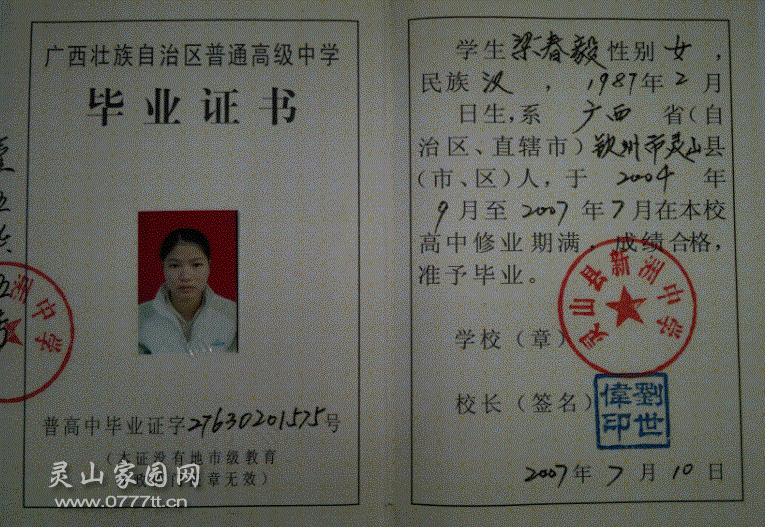 广西壮族自治区普通高级中学
毕业证书
普高中毕业证字27630201575号
(本证没有地市级教育
章无效)
灵山家园网
www.0777tt.cn
洲中学
学生梁春毅性别女,
民族汉,1987年2月
日生,系广西省(自
治区、直辖市)钦州市灵山县
(市、区)人,于2004年
9月至2007年7月在本校
高中修业期满,成绩合格,
准予毕业。
学校(章)
灵山县新洲中学
校长(签名)
劉世偉印
2007年7月10日